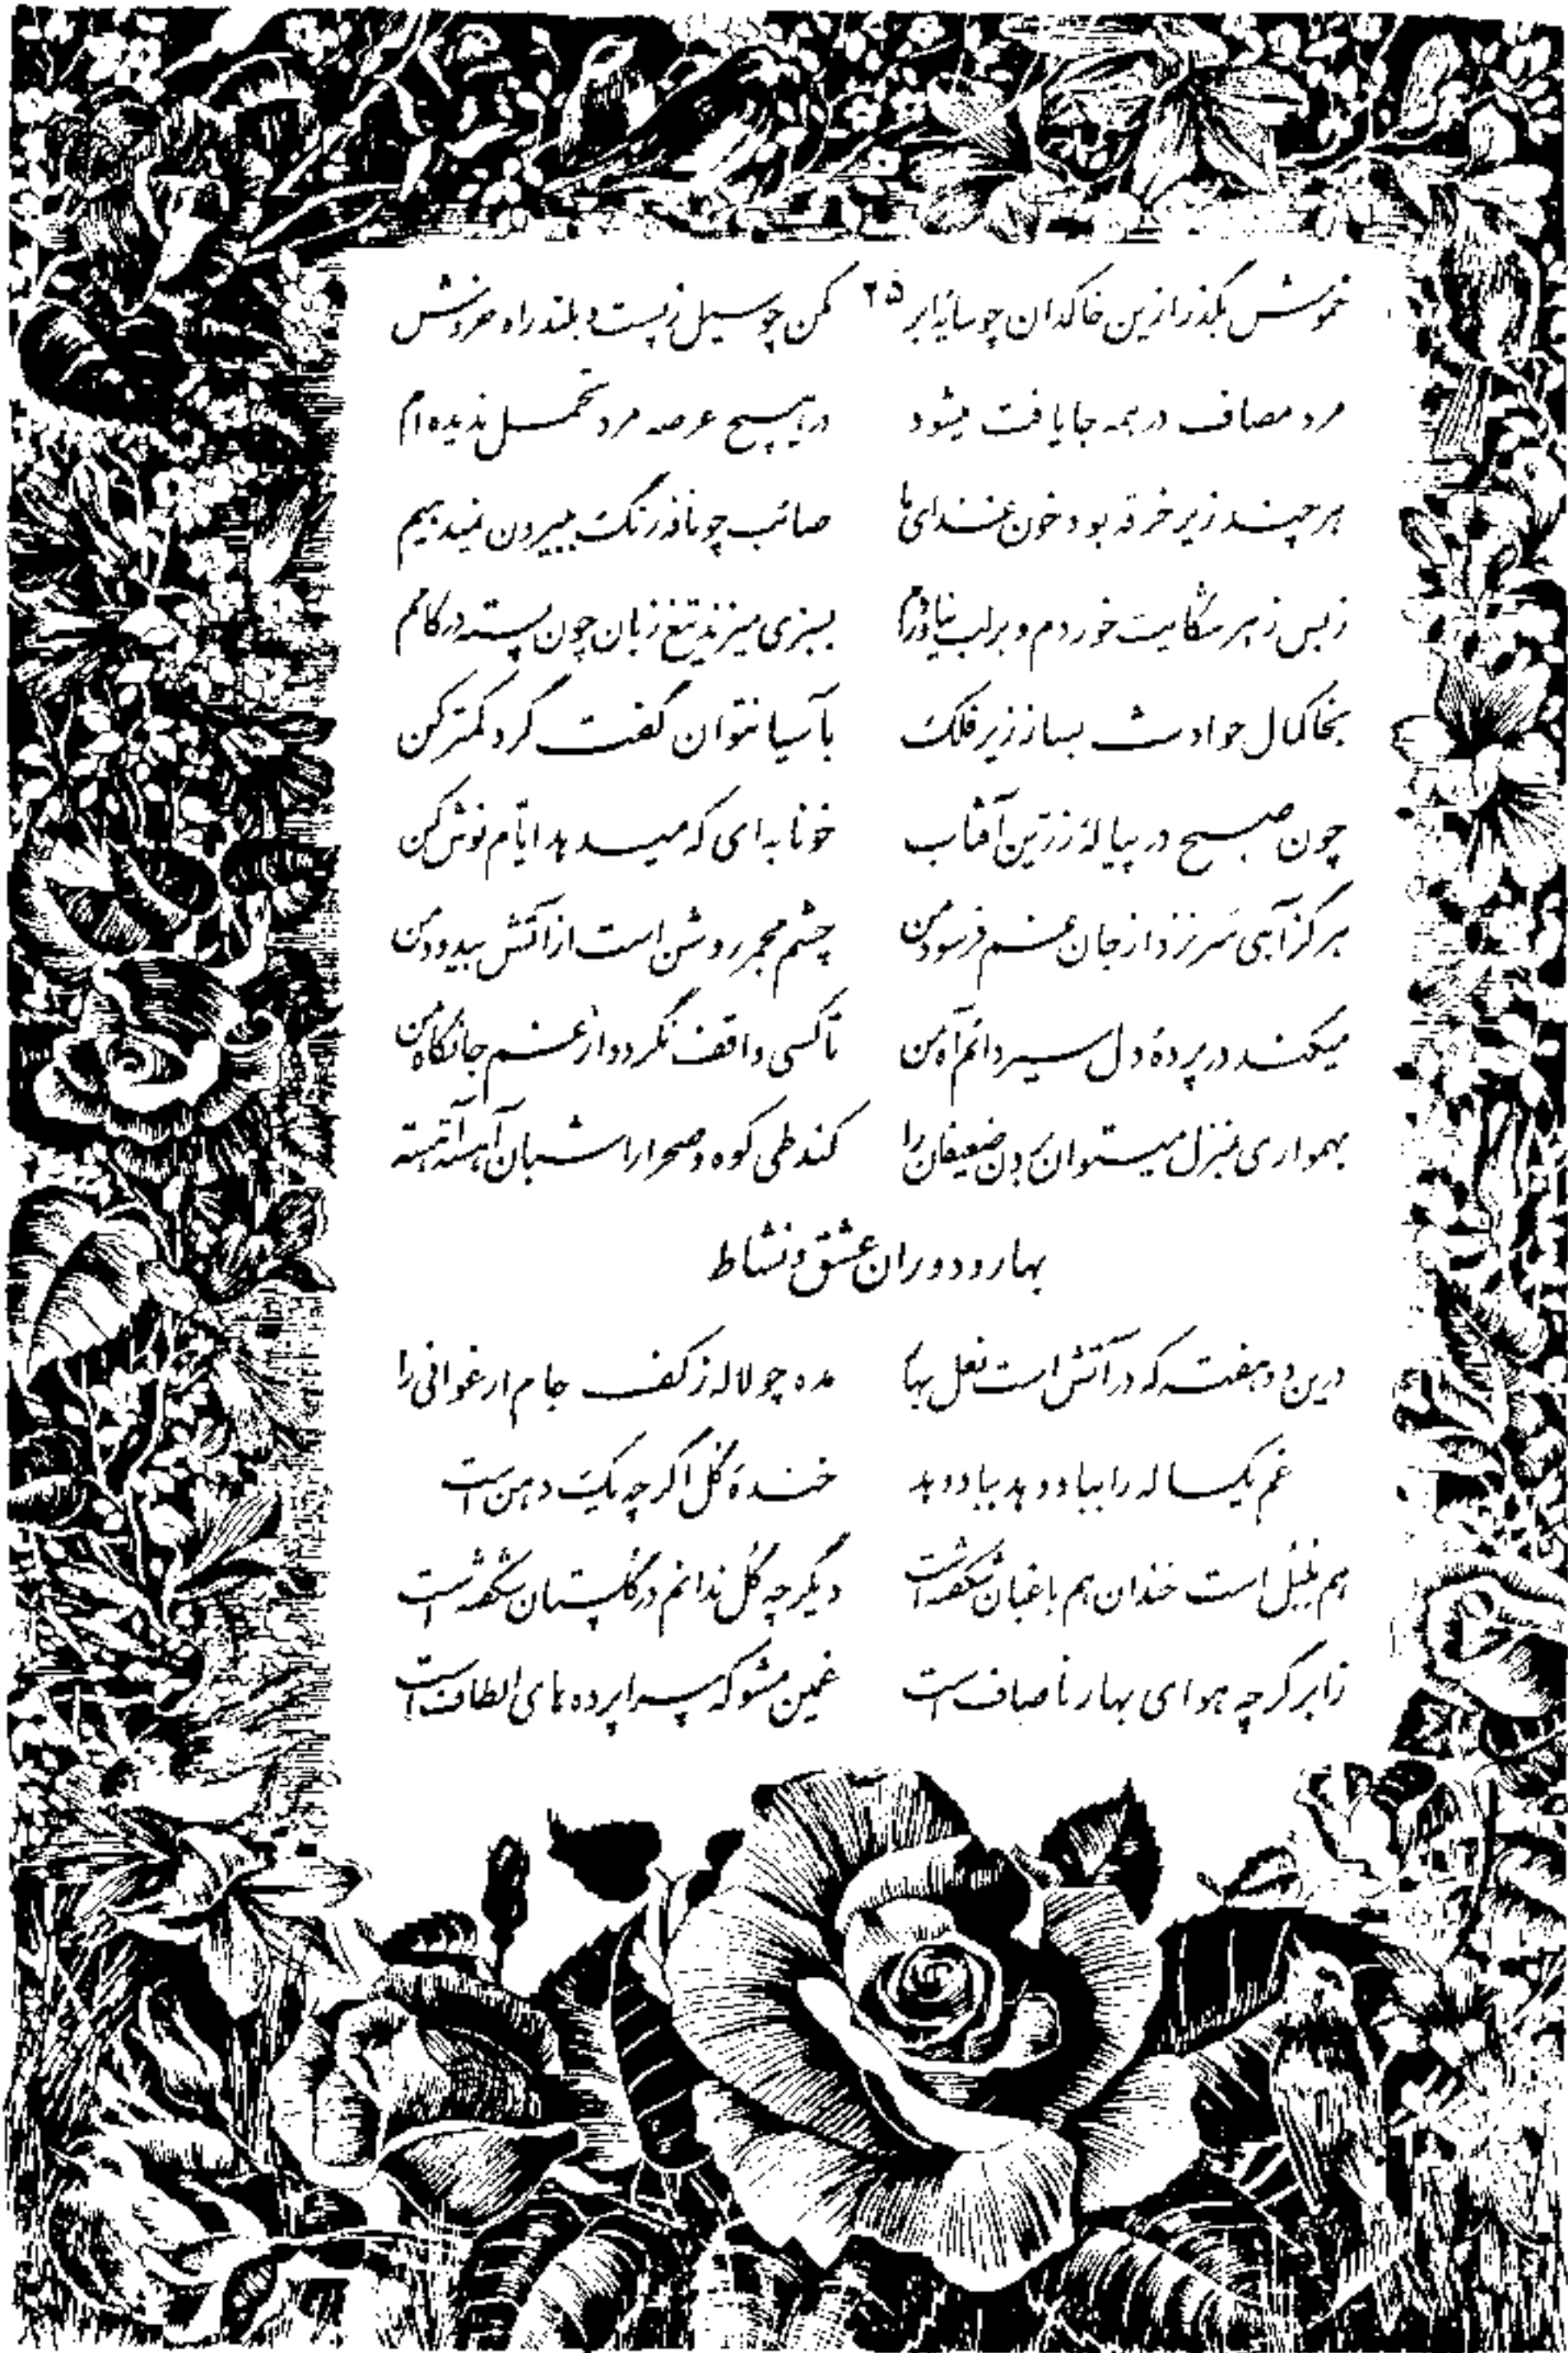 خموش بگذر ازین خاکدان چو سایهٔ ابر ۲۵ مکن چو سیل ز پست و بلند راه خروش
مرد مصاف در همه جا یافت میشود در هیچ عرصه مرد تحمل ندیده ام
هر چند زیر خرقه بود خون غذای ما صائب چو نافه رنگ ببیرون نمیدهیم
ز بس زهر شکایت خوردم و بر لب نیاوردم بسبزی میزند تیغ زبان چون پسته در کامم
بخاکمال حوادث بساز زیر فلک بآسیا نتوان گفت گرد کمتر کن
چون صبح در پیالهٔ زرین آفتاب خونابه ای که میدهد ایام نوش کن
هرگز آهی سر نزد از جان غم فرسود من چشم مجمر روشن است از آتش بیدود من
میکند در پردهٔ دل سیر دائم آه من تا کسی واقف نگردد از غم جانکاه من
بهمواری بمنزل میتوان بردن ضعیفان را کند طی کوه و صحرا را شبان آهسته آهسته
بهار و دوران عشق و نشاط
درین دو هفته که در آتش است نعل بهار مده چو لاله ز کف جام ارغوانی را
غم یکساله را بباد دهد بباد دهد خندهٔ گل اگر چه یک دهن است
هم بلبل است خندان هم باغبان شکفته است دیگر چه گل ندانم در گلستان شکفته است
ز ابر گرچه هوای بهار ناصاف است غمین مشو که سراپرده های الطاف است